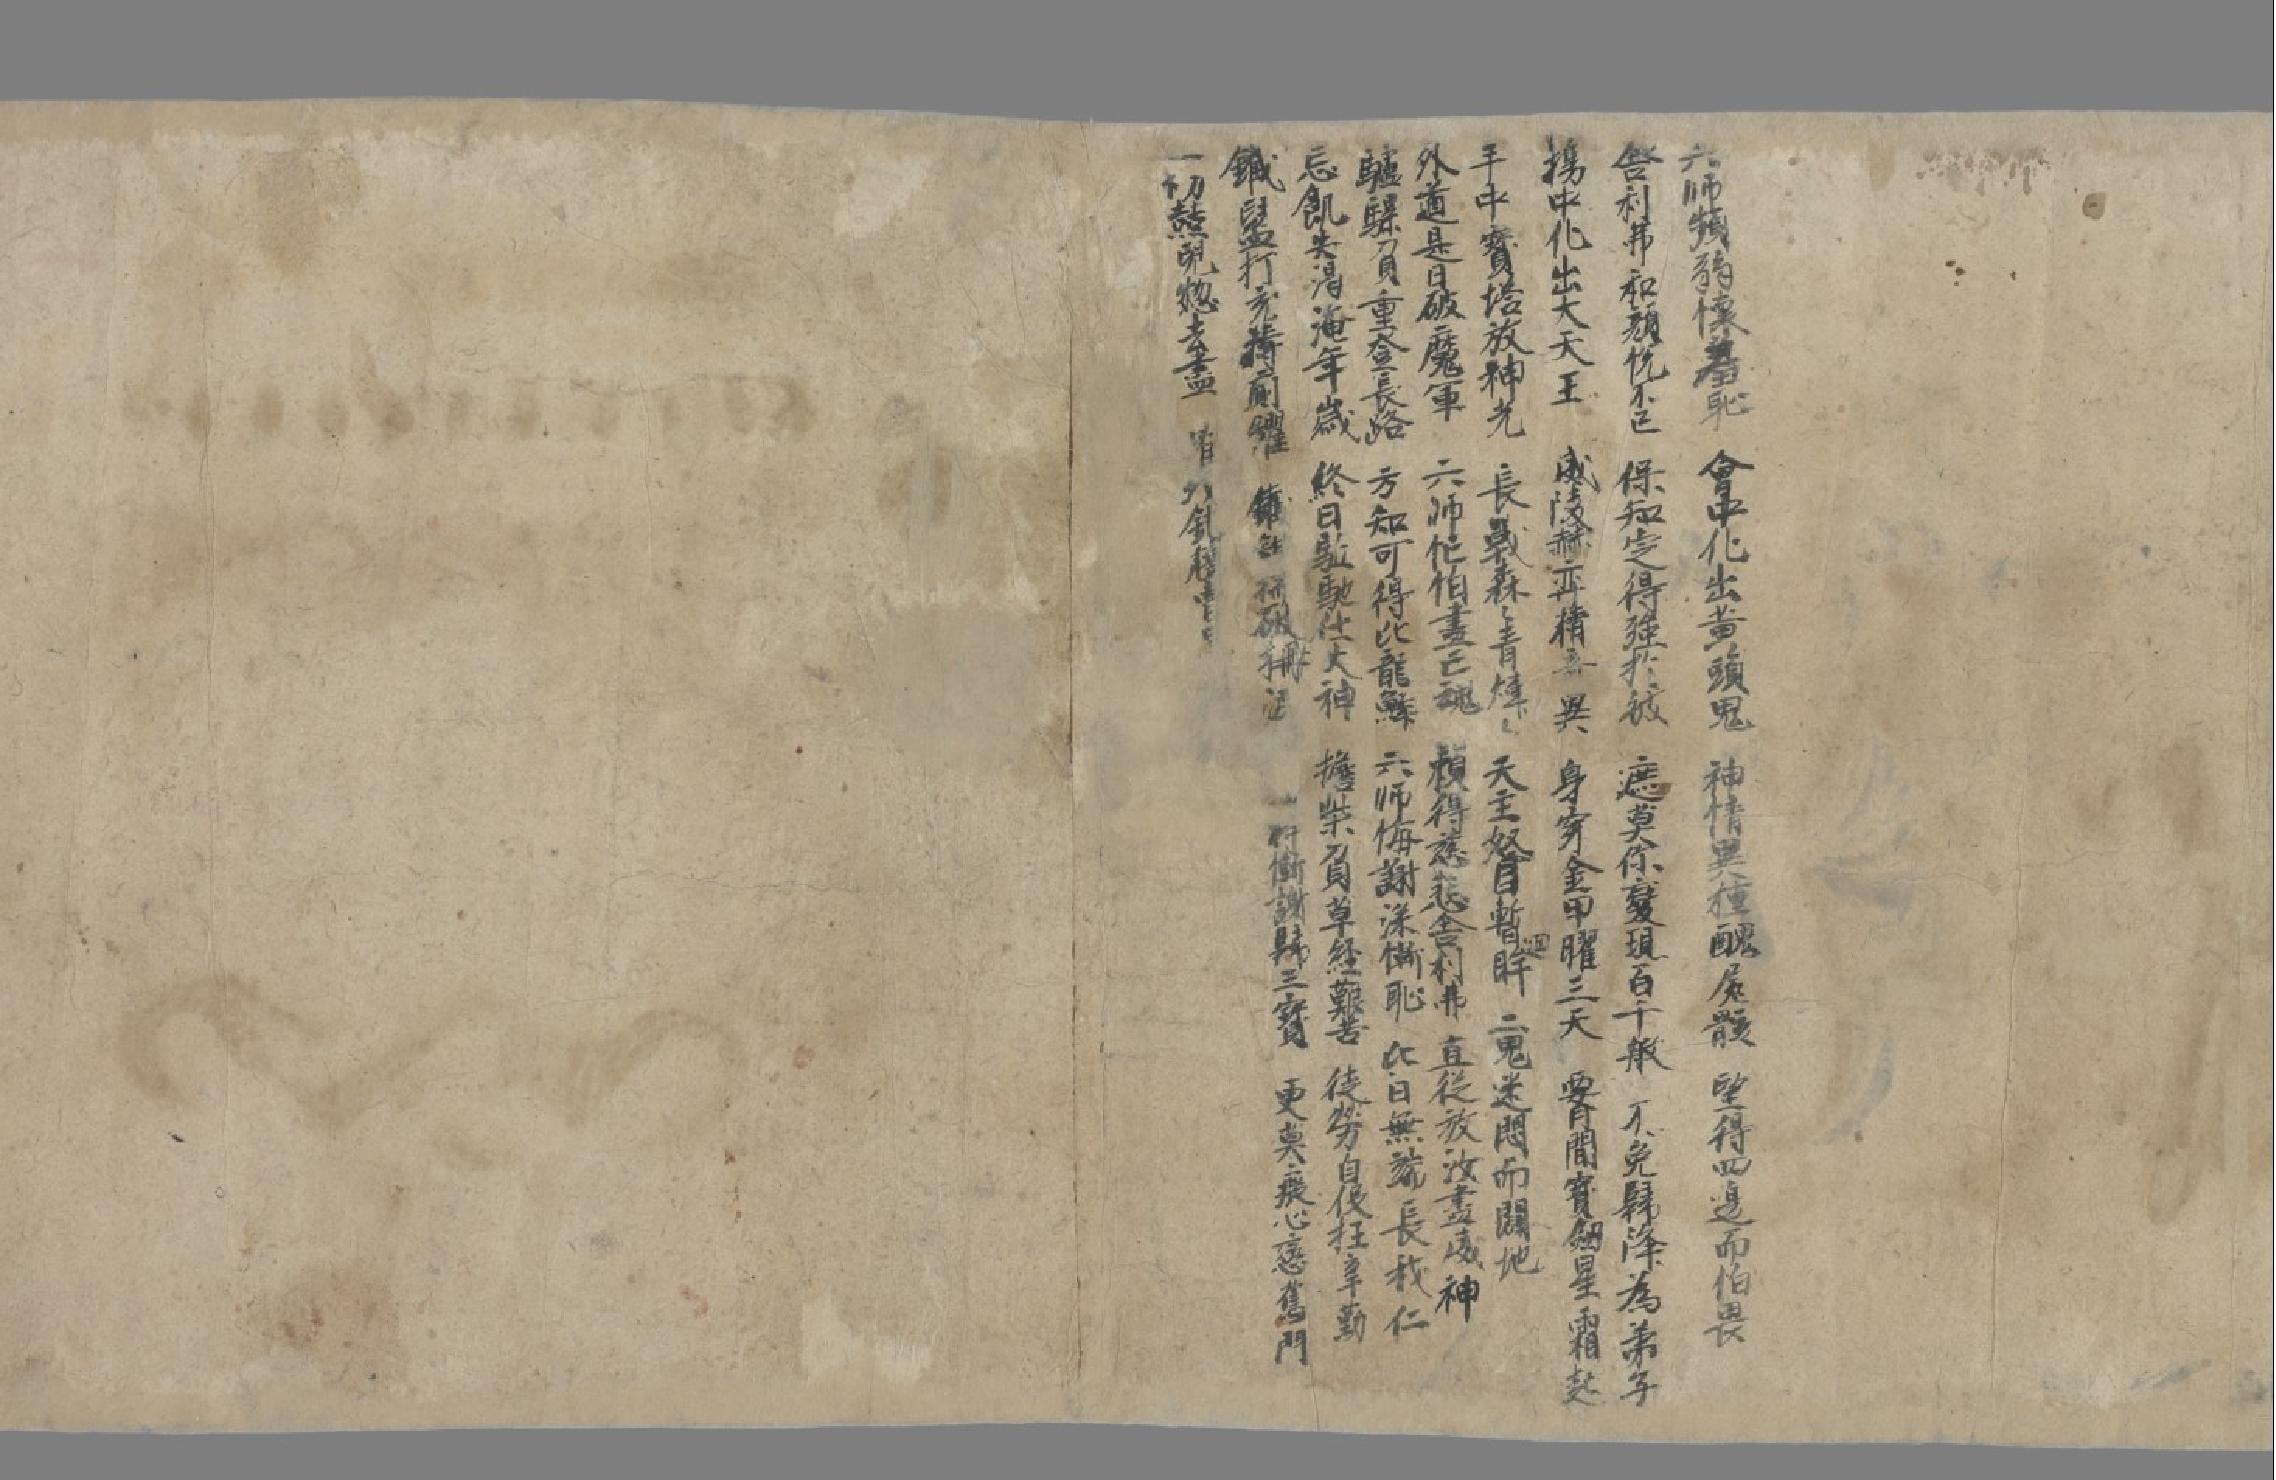 六師頻弱懷羞恥 會中化出黃頭鬼 神情異種醜屍骸 望得四邊而怕畏
舍利弗和顏悅不已 保知定得強於彼 遮莫你變現百千般 不免歸降為弟子
揚中化出大天王 威陵赫弈精無異 身穿金甲曜三天 要間寶劍星霜起
手中寶塔放神光 長戟森〻青燁〻 天主怒目暫迴眸 二鬼迷悶而闢地
外道是日破魔軍 六師忙怕盡亡魂 賴得慈悲舍利弗 直從放汝盡威神
驢騾負重登長路 方知可得比龍鱗 六師悔謝深慚恥 比日無端長我仁
忘飢失渴淹年歲 終日驅馳仕大神 擔柴負草經艱苦 徒勞自役枉辛勤
鐵 打 廁 破 行慚謝歸三寶 更莫癡心戀舊門
一切 總去盡